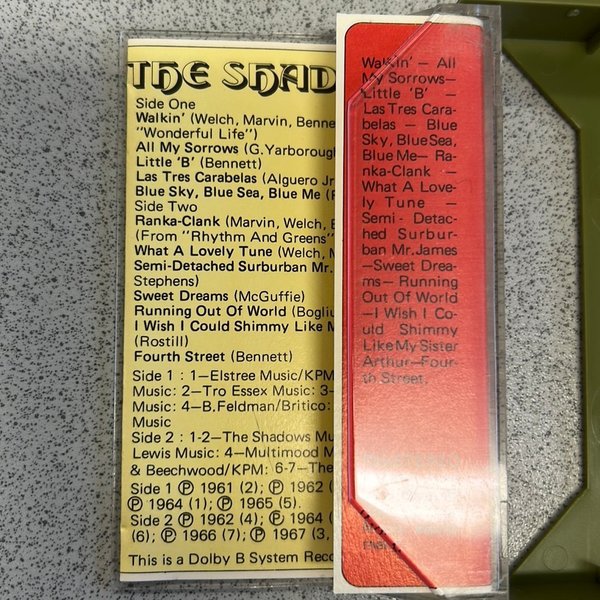 THE SHAD
Side One
Walkin' (Welch, Marvin, Benne
"Wonderful Life")
All My Sorrows (G.Yarborough
Little 'B' (Bennett)
Las Tres Carabelas (Alguero Jr
Blue Sky, Blue Sea, Blue Me (
Side Two
Ranka-Clank (Marvin, Welch, B
(From "Rhythm And Greens"
What A Lovely Tune (Welch, M
Semi-Detached Surburban Mr.
Stephens)
Sweet Dreams (McGuffie)
Running Out Of World (Bogliu
I Wish I Could Shimmy Like M
(Rostill)
Fourth Street (Bennett)
Side 1 : 1—Elstree Music/KPM
Music: 2—Tro Essex Music: 3—
Music: 4—B.Feldman/Britico:
Music
Side 2 : 1-2—The Shadows Mu
Lewis Music: 4—Multimood M
& Beechwood/KPM: 6-7—The
Side 1 ℗ 1961 (2); ℗ 1962 (
℗ 1964 (1); ℗ 1965 (5).
Side 2 ℗ 1962 (4); ℗ 1964 (
(6); ℗ 1966 (7); ℗ 1967 (3,
This is a Dolby B System Reco
Walkin' — All
My Sorrows—
Little 'B' —
Las Tres Cara-
belas — Blue
Sky, Blue Sea,
Blue Me— Ra-
nka-Clank —
What A Love-
ly Tune —
Semi - Detac-
hed Surbur-
ban Mr.James
—Sweet Drea-
ms — Running
Out Of World
—I Wish I Co-
uld Shimmy
Like My Sister
Arthur—Four-
th Street.